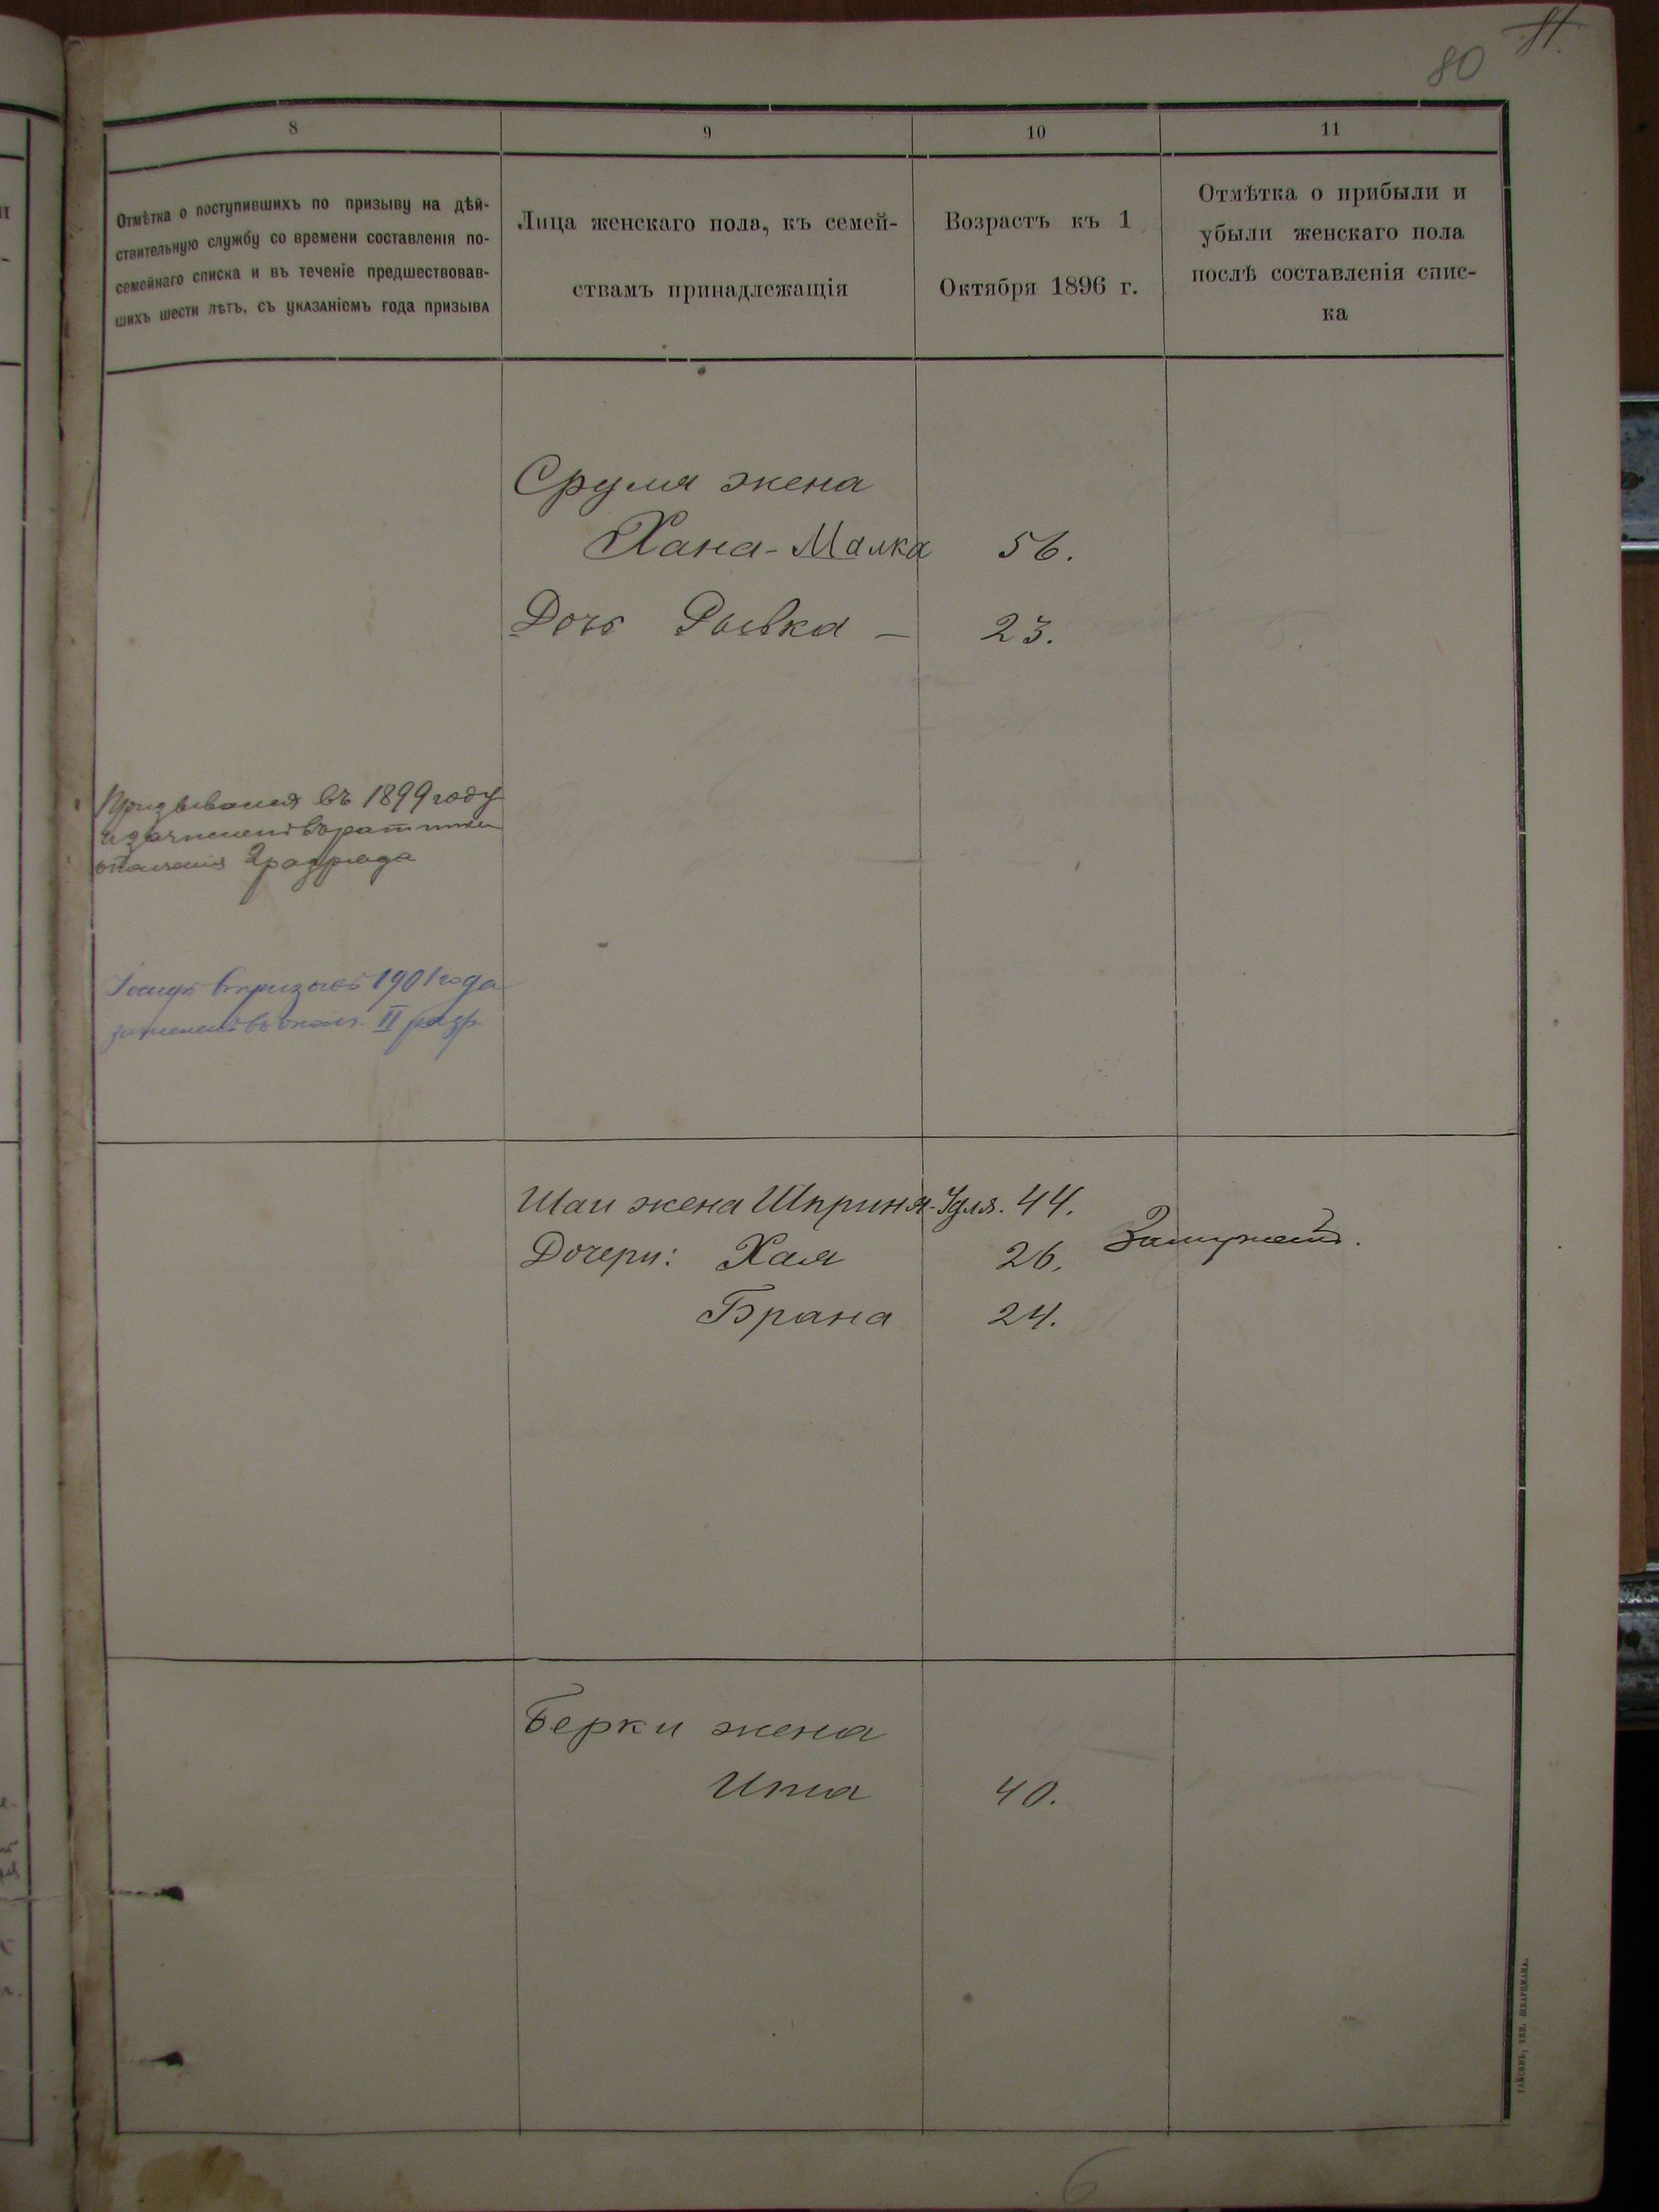 81.
80
8
9
10
11
Отмѣтка о поступившихъ по призыву на дѣй-
ствительную службу со времени составленія по-
семейнаго списка и въ теченіе предшествовав-
шихъ шести лѣтъ, съ указаніемъ года призыва
Лица женскаго пола, къ семей-
ствамъ принадлежащія
Возрастъ къ 1
Октября 1896 г.
Отмѣтка о прибыли и
убыли женскаго пола
послѣ составленія спис-
ка
Сруля жена
Хана-Малка 56.
Дочь Рывка — 23.
Призывался въ 1899 году
и зачисленъ въ ратники
ополченія 2 разряда
въ призывъ 1901 года
зачисленъ въ ополч. II разр.
Шаи жена Шприня-Удля. 44.
Дочери: Хая 26. Замужемъ.
Брана 24.
Берки жена
Ита 40.
ГАЙСИНЪ, ТИП. ШВАРЦМАНА.
6